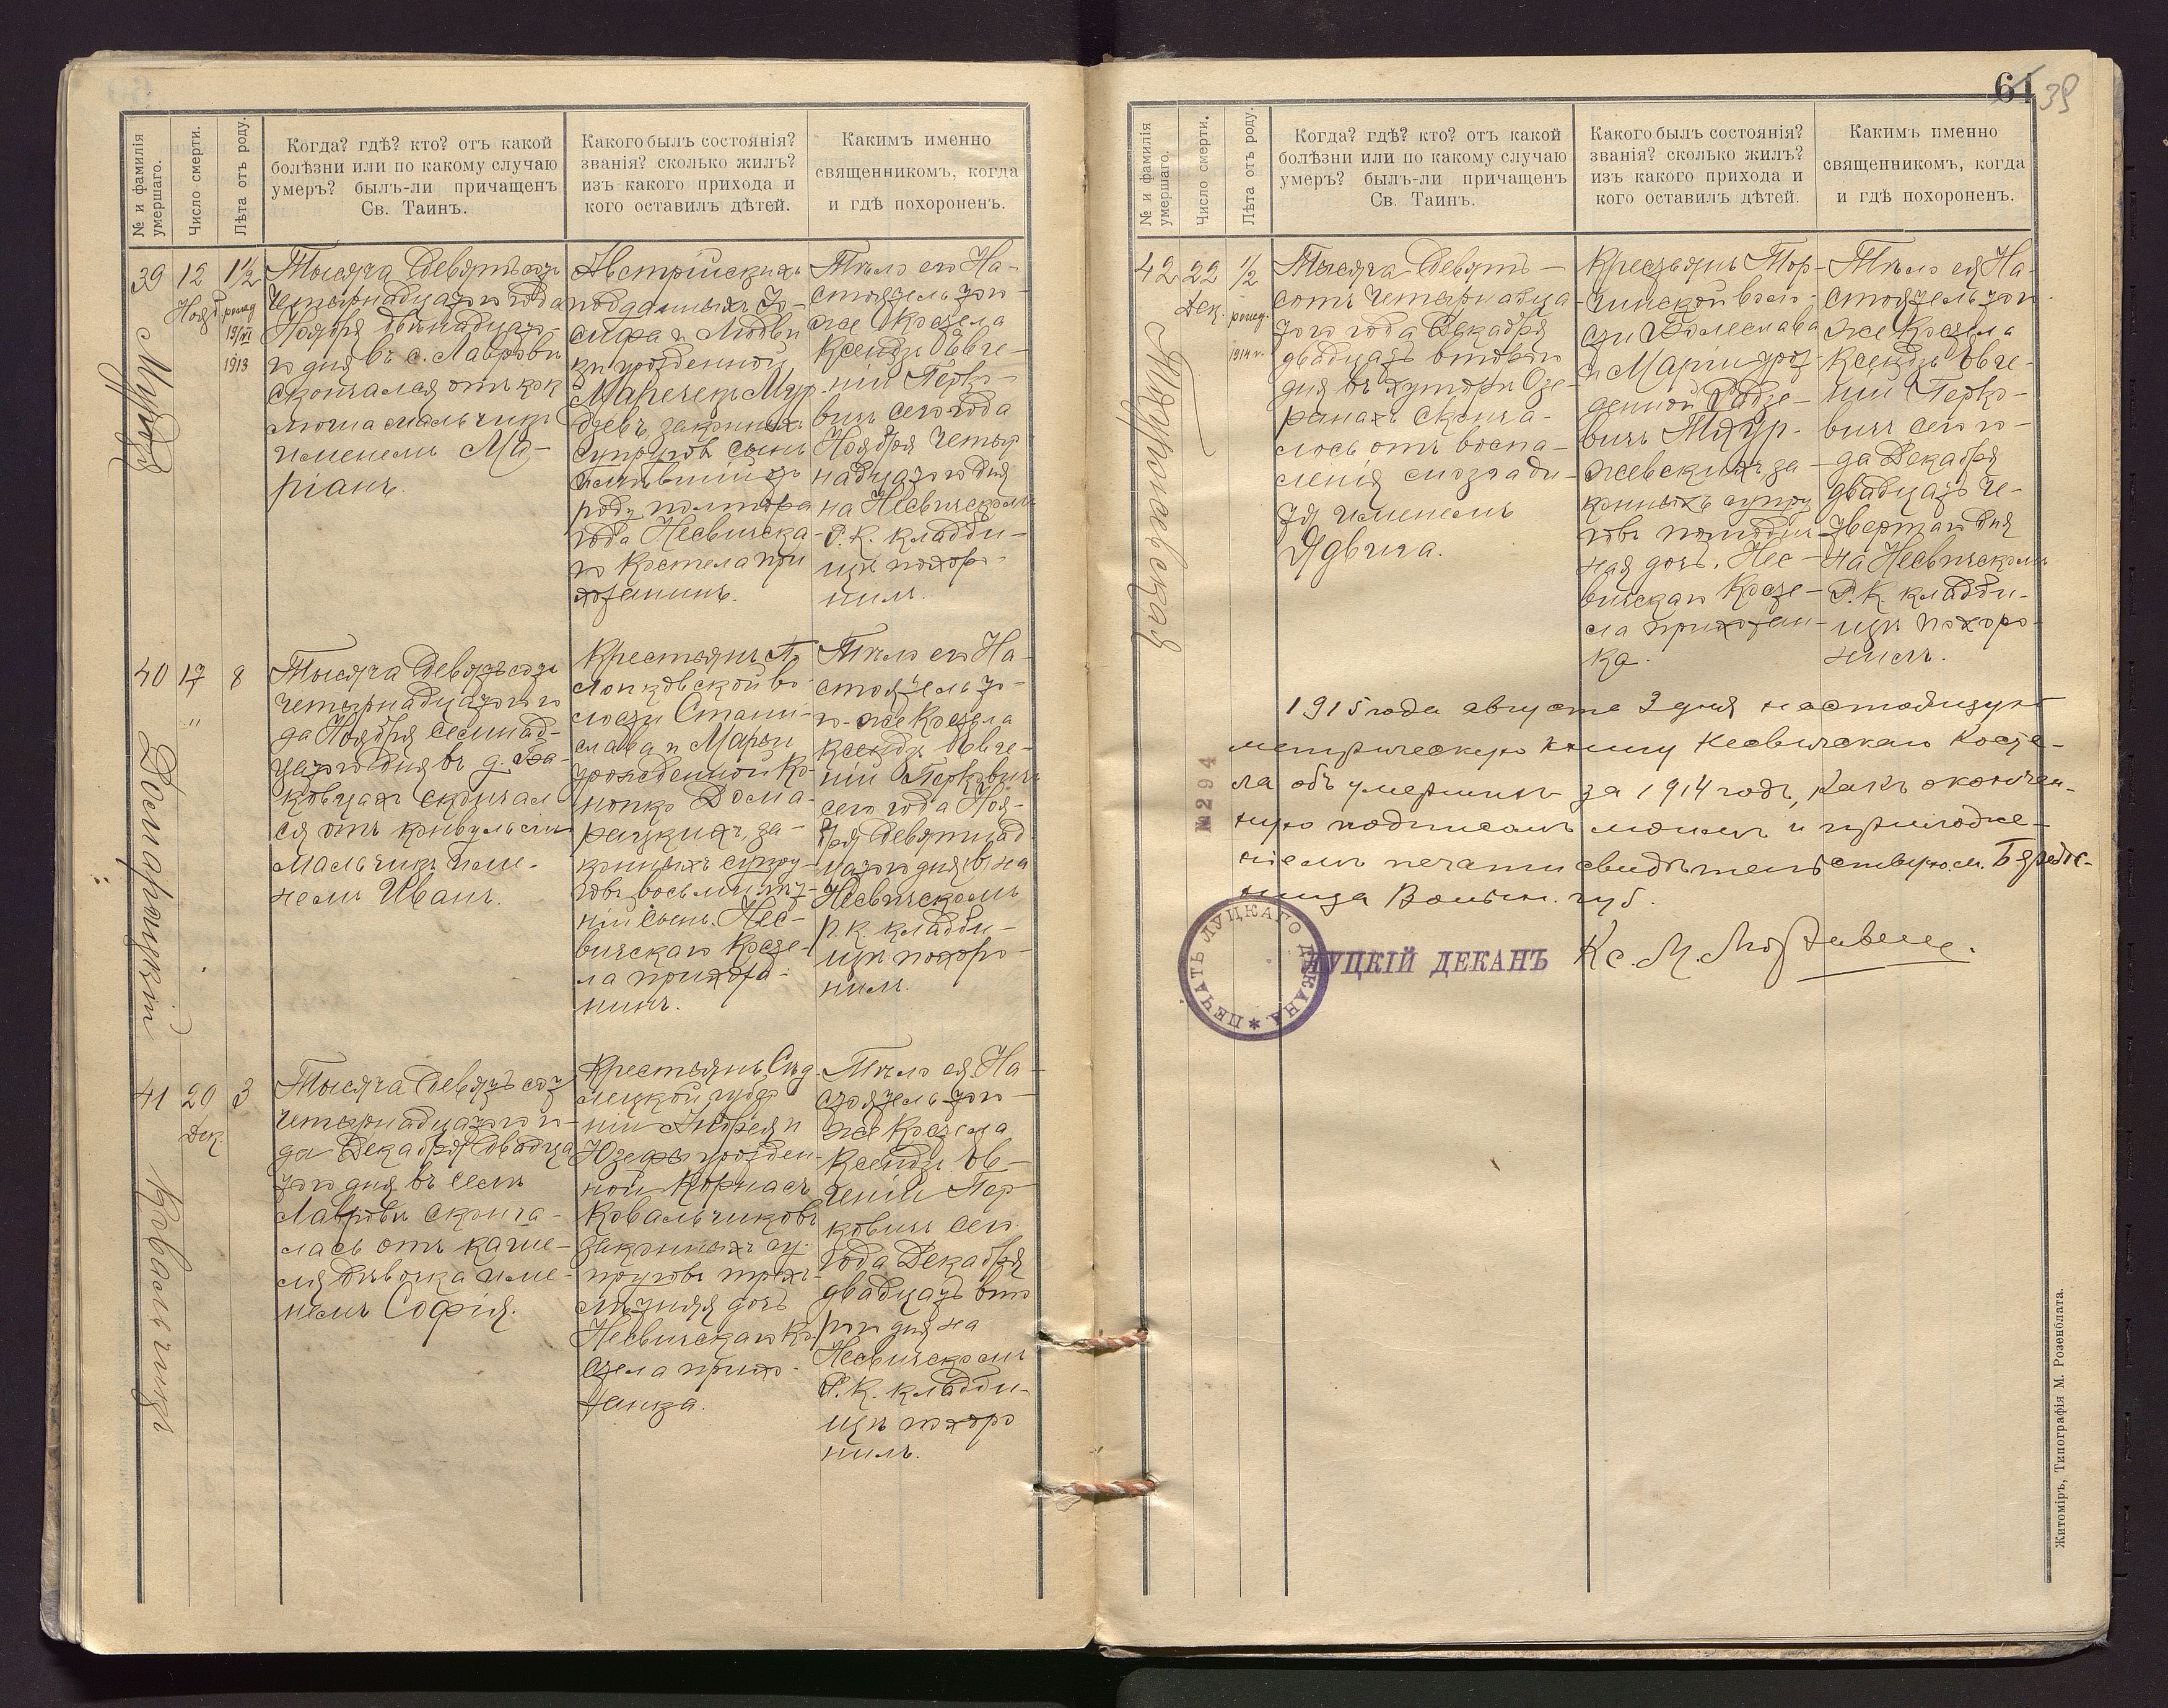 № и фамилія умершаго.
Число смерти.
Лѣта отъ роду.
Когда? гдѣ? кто? отъ какой
болѣзни или по какому случаю
умеръ? былъ-ли причащенъ
Св. Таинъ.
Какого былъ состоянія?
званія? сколько жилъ?
изъ какого прихода и
кого оставилъ дѣтей.
Какимъ именно
священникомъ, когда
и гдѣ похороненъ.
39
12
Нояб.
1½
1913
Тысяча девятьсотъ
четырнадцатого года
Ноября двѣнадцато-
го дня въ с. Лавровѣ
скончался отъ кок
люша мальчикъ
именемъ Ма-
ріанъ.
Австрійскихъ
подданныхъ Іо-
сифа и Людви
ки урожденной
законныхъ
супруговъ сынъ
имѣвшій отъ
роду полтора
года Несвичска-
го костела при
хожанинъ.
Тѣло его На-
стоятель того
же Костела
Ксендзъ Евге-
ній Перко-
вичъ сего года
Ноября четыр
надцатого дня
на Несвичскомъ
Р. К. кладби-
щѣ похоро-
нилъ.
40
17
"
8
Домарацкій
Тысяча девятьсотъ
четырнадцатого го
да Ноября семнад-
цатого дня въ д. Ба-
ковцахъ скончал
ся отъ конвульсіи
мальчикъ име-
немъ Иванъ.
Крестьянъ По
лонковской во-
лости Стани-
слава и Маріи
урожденной Ко
нопко Дома-
рацкихъ, за-
конныхъ супру-
говъ восьмилѣт-
ній сынъ. Нес-
вичскаго косте-
ла прихожа-
нинъ.
Тѣло его На-
стоятель то-
го-же Костела
Ксендзъ Евге-
ній Перковичъ
сего года Ноя-
бря девятнад
цатого дня на
Несвичскомъ
Р. К. кладби-
щѣ похоро-
нилъ.
41
20
Дек.
3
Ковальчикъ
Тысяча девятьсотъ
четырнадцатого го-
да Декабря двадца
того дня въ селѣ
Лавровѣ сконча-
лась отъ каше-
ля дѣвочка име-
немъ Софія.
Крестьянъ Сѣд-
лецкой губер
ніи Андрея и
Юзефы урожден-
ной Корнасъ
Ковальчиковъ
законныхъ су-
пруговъ трех-
лѣтняя дочь
Несвичскаго Ко
стела прихо-
жанка.
Тѣло ея На-
стоятель того
же Костела
Ксендзъ Ев-
геній Пер-
ковичъ сего
года Декабря
двадцать вто
рого дня на
Несвичскомъ
Р. К. кладби-
щѣ похоро
нилъ.
61
39
№ и фамилія умершаго.
Число смерти.
Лѣта отъ роду.
Когда? гдѣ? кто? отъ какой
болѣзни или по какому случаю
умеръ? былъ-ли причащенъ
Св. Таинъ.
Какого былъ состоянія?
званія? сколько жилъ?
изъ какого прихода и
кого оставилъ дѣтей.
Какимъ именно
священникомъ, когда
и гдѣ похороненъ.
42
22
Дек.
½
1914 г.
Тысяча девять-
сотъ четырнадца
того года Декабря
двадцать второго
дня въ хуторѣ Озе-
ранахъ сконча-
лось отъ воспа-
ленія мозга ди-
тя именемъ
Ядвига.
Крестьянъ Тор-
чинской воло-
сти Болеслава
и Маріи урож
денной
законныхъ супру
говъ полугодич
ная дочь. Нес-
вичскаго Косте-
ла прихожан-
ка.
Тѣло ея На-
стоятель того
же Костела
Ксендзъ Евге-
ній Перко-
вичъ сего го-
да Декабря
двадцать че-
твертаго дня
на Несвичскомъ
Р. К. кладби-
щѣ похоро-
нилъ.
1915 года августа 3 дня настоящую
метрическую книгу Несвичскаго Косте-
ла объ умершихъ за 1914 годъ, какъ окончен-
ную подписомъ моимъ и приложе-
ніемъ печати свидѣтельствую.
Волын. губ.
№294
ПЕЧАТЬ ЛУЦКАГО ДЕКАНА
ЛУЦКІЙ ДЕКАНЪ
Кс. М.
Житоміръ, Типографія М. Розенблата.